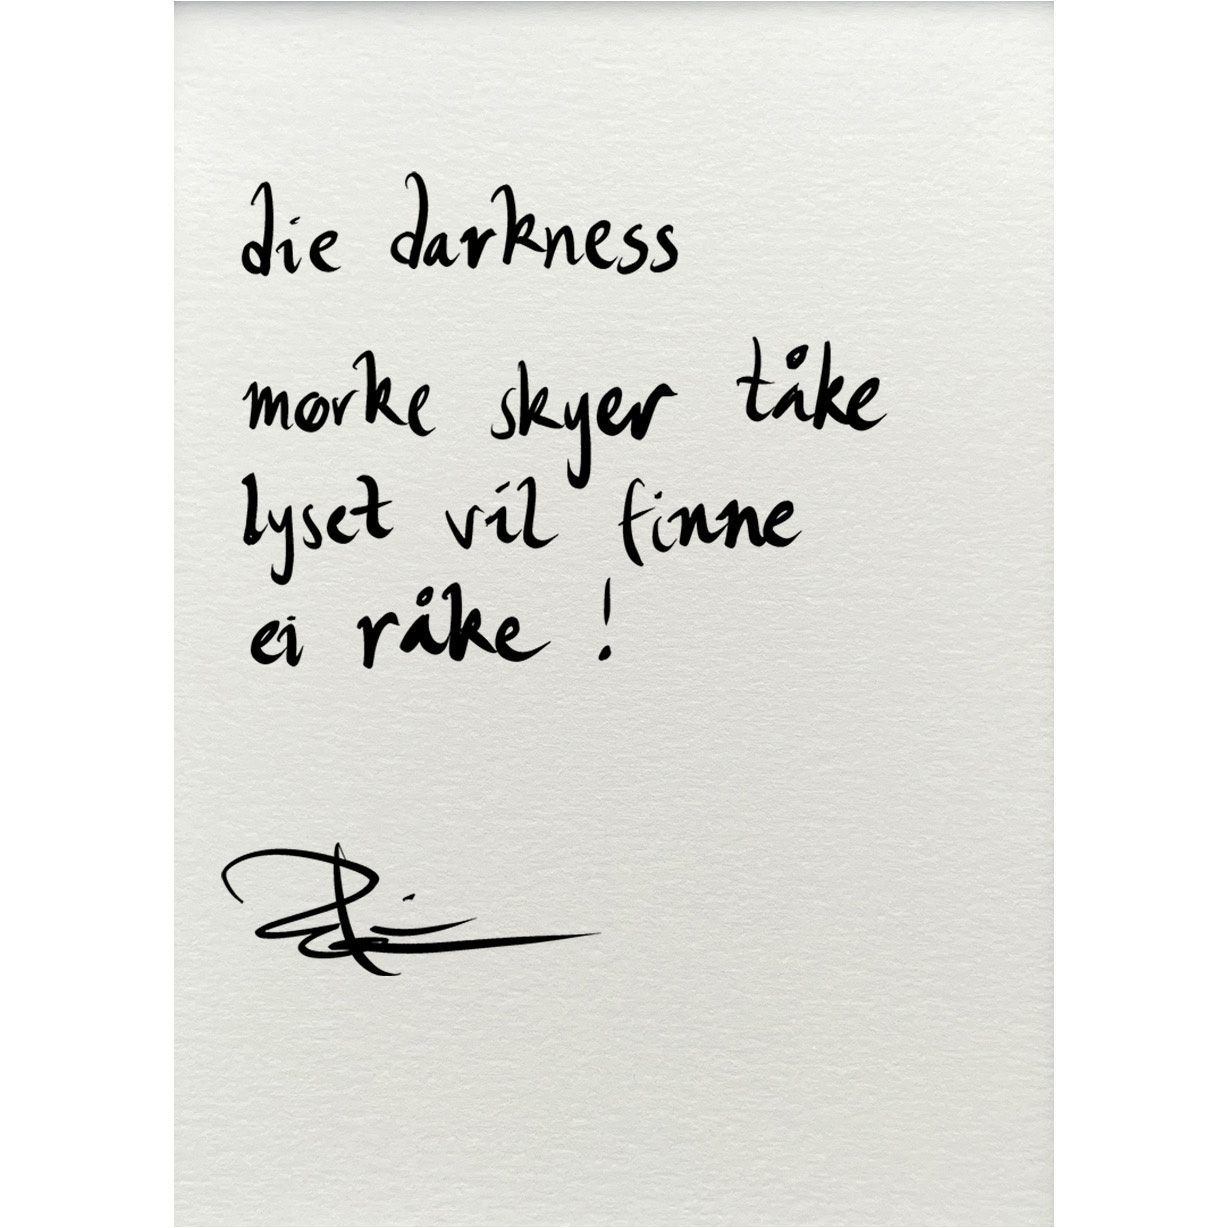 die darkness
mørke skyer tåke
lyset vil finne
ei råke !